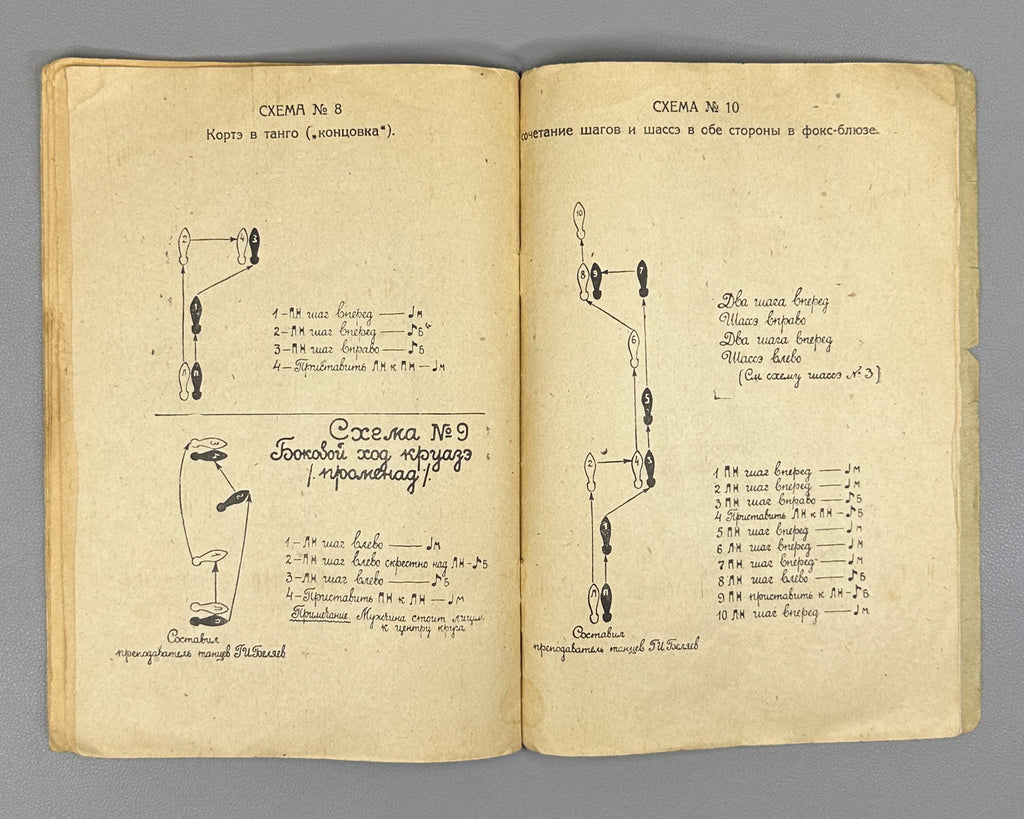 СХЕМА № 8
Кортэ в танго („концовка“).
2
4
3
1
Л
П
1 - ПН шаг вперед — ♩м
2 - ЛН шаг вперед — ♪Б
3 - ПН шаг вправо — ♪Б
4 - Приставить ЛН к ПН — ♩м
Схема №9
Боковой ход круазэ
/променад/.
3
4
2
1
Л
П
1. - ЛН шаг влево — ♩м
2 - ПН шаг влево скрестно над ЛН - ♪Б
3 - ЛН шаг влево — ♪Б
4 - Приставить ПН к ЛН — ♩м
Примечание. Мужчина стоит лицом
к центру круга
Составил
преподаватель танцев Г.И.Беляев
СХЕМА № 10
сочетание шагов и шассэ в обе стороны в фокс-блюзе.
10
8
9
7
6
5
2
4
3
1
Л
П
Два шага вперед
Шассэ вправо
Два шага вперед
Шассэ влево
(См схему шассэ № 3)
1 ПН шаг вперед — ♩м
2 ЛН шаг вперед — ♩м
3 ПН шаг вправо — ♪Б
4 Приставить ЛН к ПН - ♪Б
5 ПН шаг вперед — ♩м
6 ЛН шаг вперед — ♩м
7 ПН шаг вперед — ♩м
8 ЛН шаг влево — ♪Б
9 ПН приставить к ЛН - ♪Б
10 ЛН шаг вперед — ♩м
Составил
преподаватель танцев Г.И.Беляев